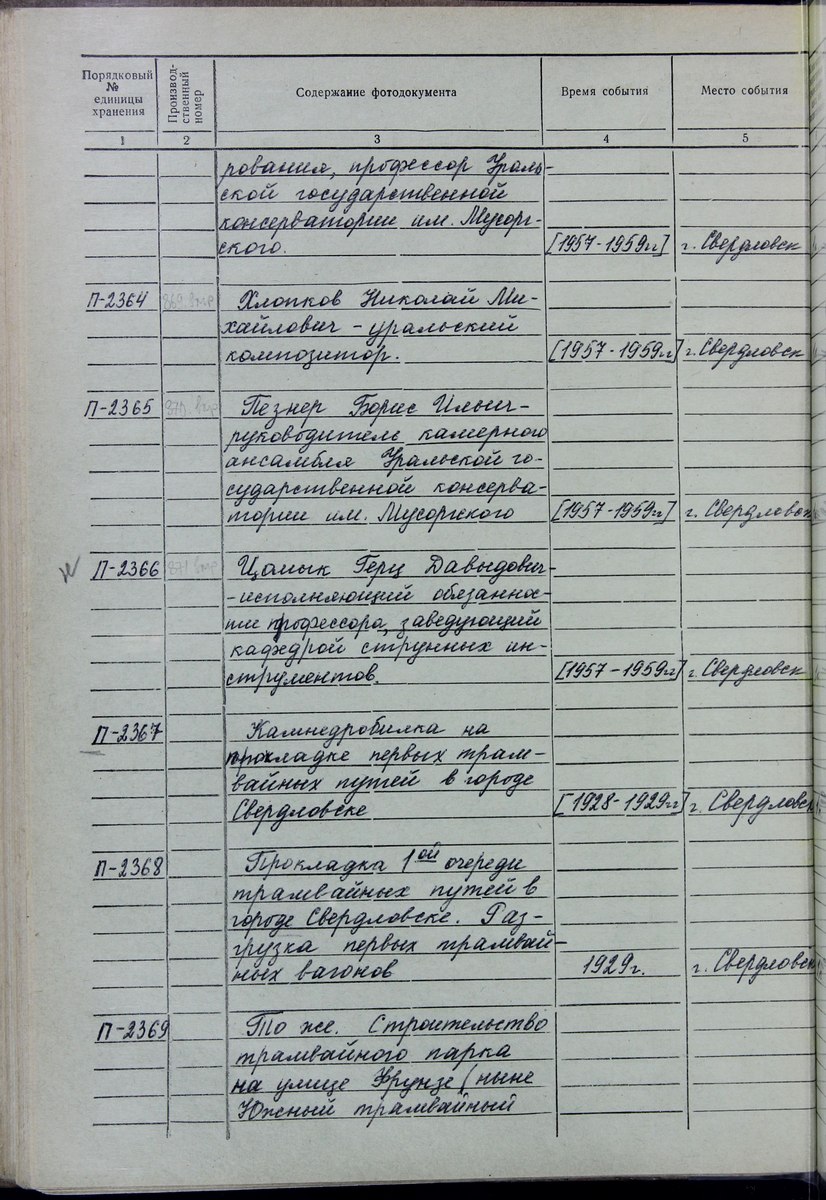 Порядковый № единицы хранения
Производ-ственный номер
Содержание фотодокумента
Время события
Место события
1 2 3 4 5
рования, профессор Ураль-
ской государственной
консерватории им. Мусорг-
ского. [1957-1959гг] г. Свердловск
П-2364 869 вмр Хлопков Николай Ми-
хайлович - уральский
композитор. [1957-1959гг] г. Свердловск
П-2365 870 вмр Певзнер Борис Ильич-
руководитель камерного
ансамбля Уральской го-
сударственной консерва-
тории им. Мусоргского [1957-1959гг] г. Свердловск
П-2366 871 вмр Цомык Герц Давыдович-
-исполняющий обязаннос-
ти профессора, заведующий
кафедрой струнных ин-
струментов. [1957-1959гг] г. Свердловск
П-2367 Камнедробилка на
прокладке первых трам-
вайных путей в городе
Свердловске [1928-1929гг] г. Свердловск
П-2368 Прокладка 1ой очереди
трамвайных путей в
городе Свердловске. Раз-
грузка первых трамвай-
ных вагонов 1929г. г. Свердловск
П-2369 То же. Строительство
трамвайного парка
на улице Фрунзе (ныне
Южный трамвайный